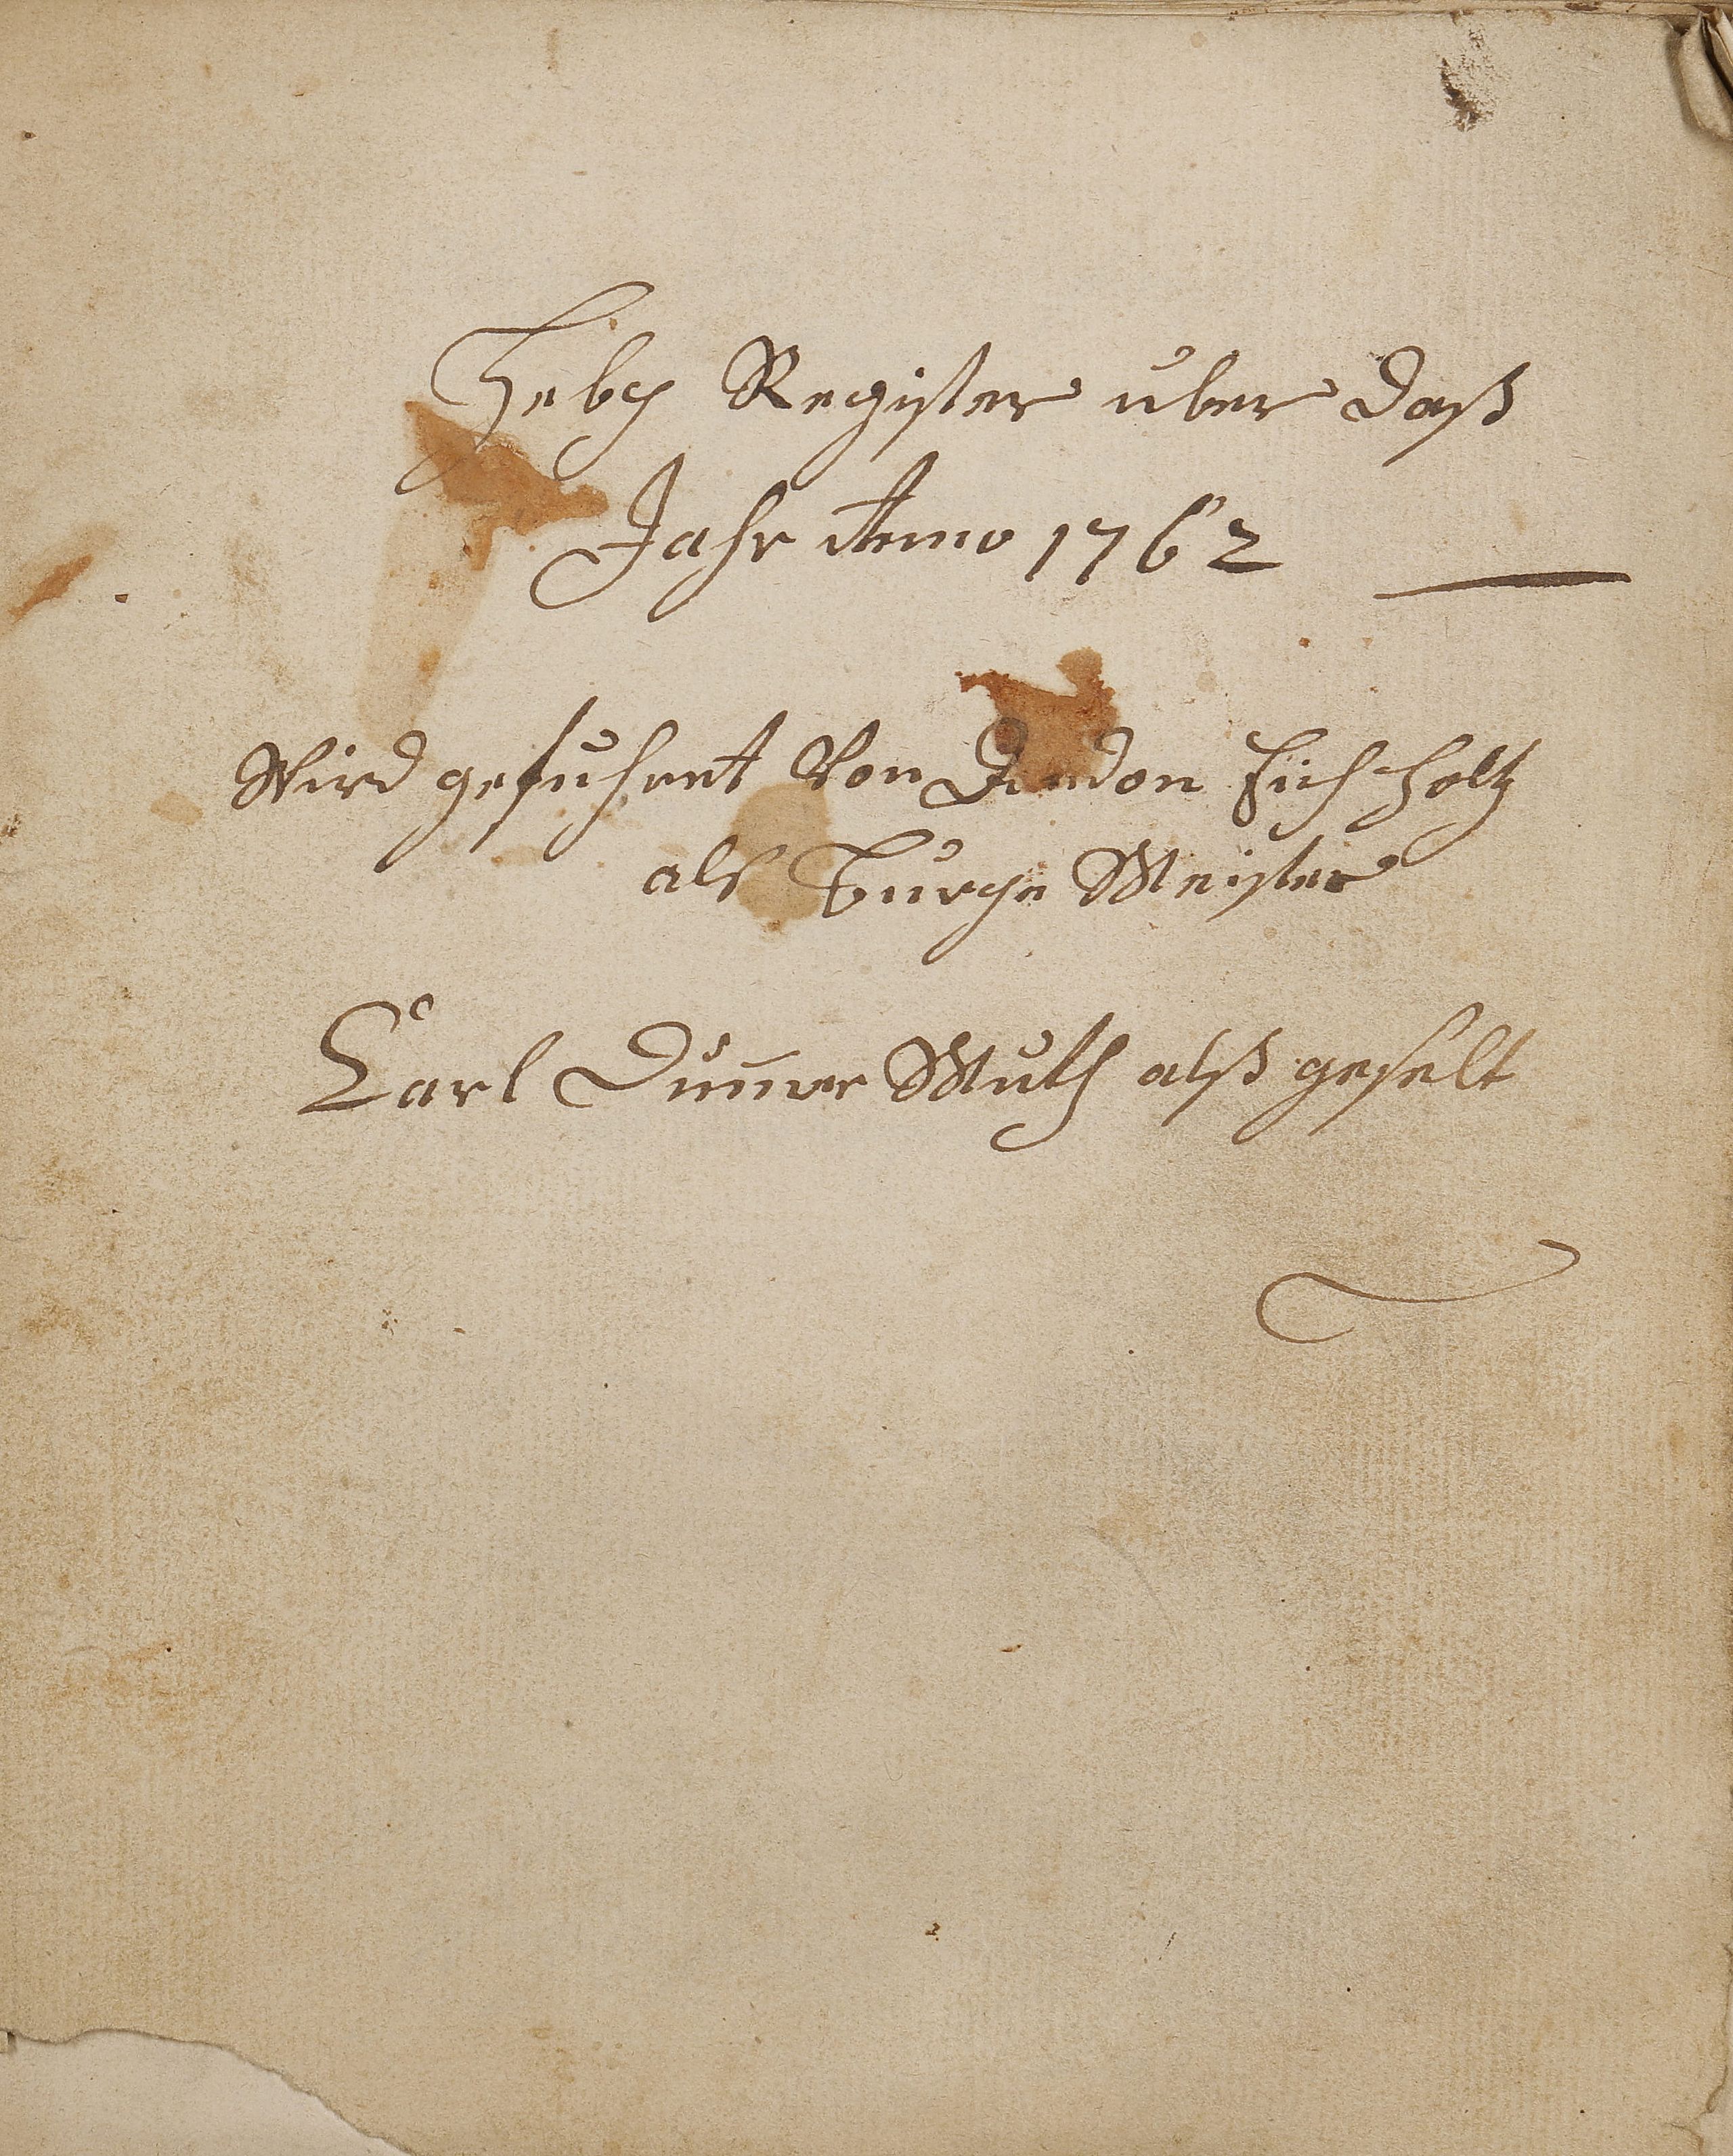 Heby Register über daß
Jahr Anno 1762
Wird geführet Von Eichholtz
als Burge Meister
Carl Muth alß geselt